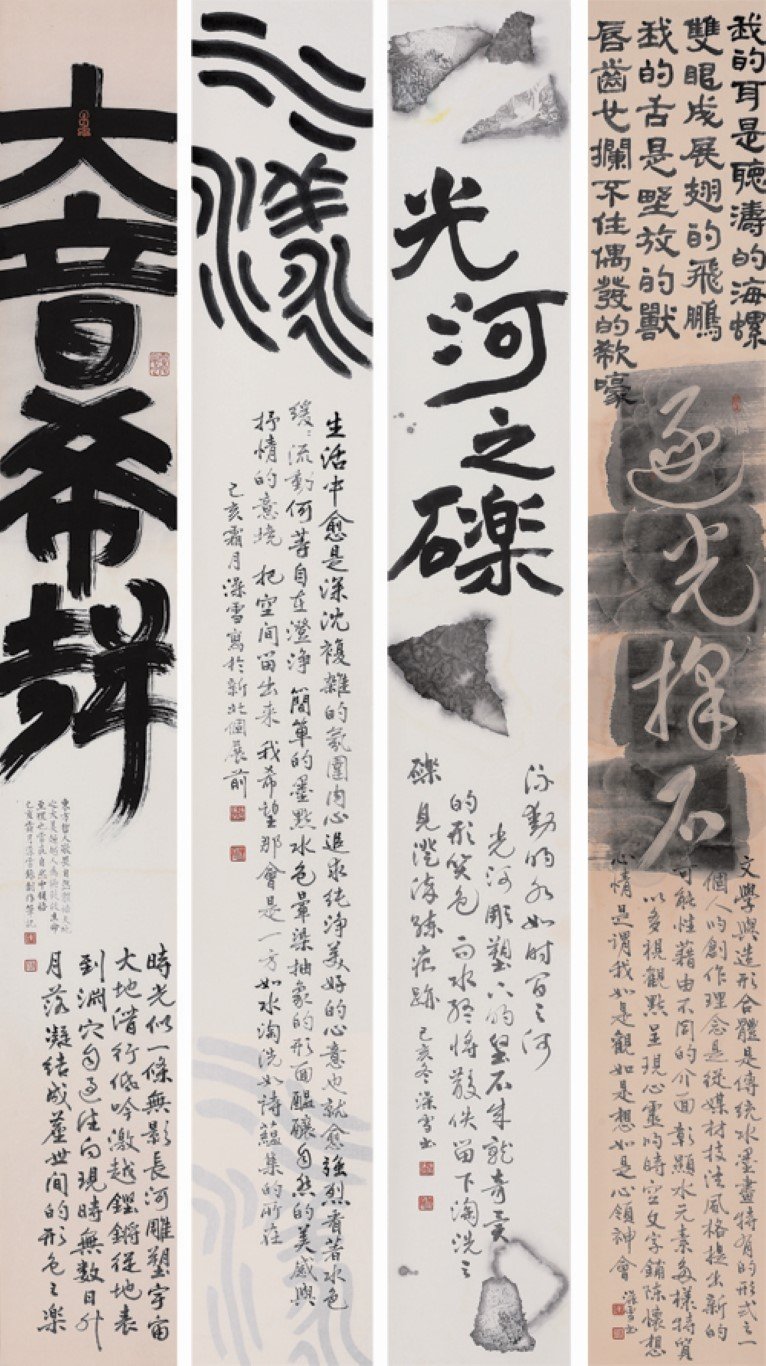 我的耳是聽濤的海螺
雙眼成展翅的飛鵬
我的舌是野放的獸
唇齒也攔不住偶發的嘶嚎
逐光探石
文學與造形合體是傳統水墨畫特有的形式之一
個人的創作理念是從媒材技法風格提出新的
可能性藉由不同的介面彰顯水元素多樣特質
以多視觀點呈現心靈的時空文字鋪陳懷想
心情是謂我如是觀如是想如是心領神會 深雪書
光河之礫
流動的水如時間之河
光河雕塑下的堅石成就奇異
的形質色 而水終將散佚留下淘洗之
礫見澄淨殊痕跡 己亥冬深雪書
水漾
生活中愈是深沈複雜的氛圍內心追求純淨美好的心意也就愈強烈看著水色
緩緩流動何等自在澄淨 簡單的墨點水色暈染抽象的形面醞釀自然的美感與
抒情的意境 把空間留出來 我希望那會是一方如水淘洗如詩蘊集的所在
己亥霜月深雪寫於新北個展前
大音希聲
時光似一條無影長河雕塑宇宙
大地潛行低吟激越鏗鏘從地表
到淵穴自過往向現時無數日升
月落凝結成塵世間的形色之樂